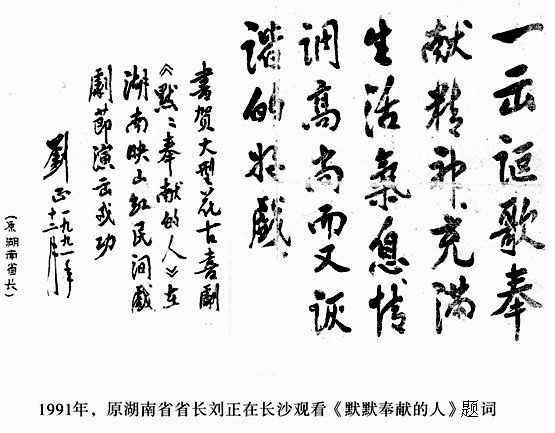 一出讴歌奉
献精神充满
生活气息情
调高尚而又诙
谐的好戏
书贺大型花古喜剧
《默〻奉献的人》在
湖南映山红民间戏
剧节演出成功
刘正一九九一年
十二月
(原湖南省省长)
1991年，原湖南省省长刘正在长沙观看《默默奉献的人》题词